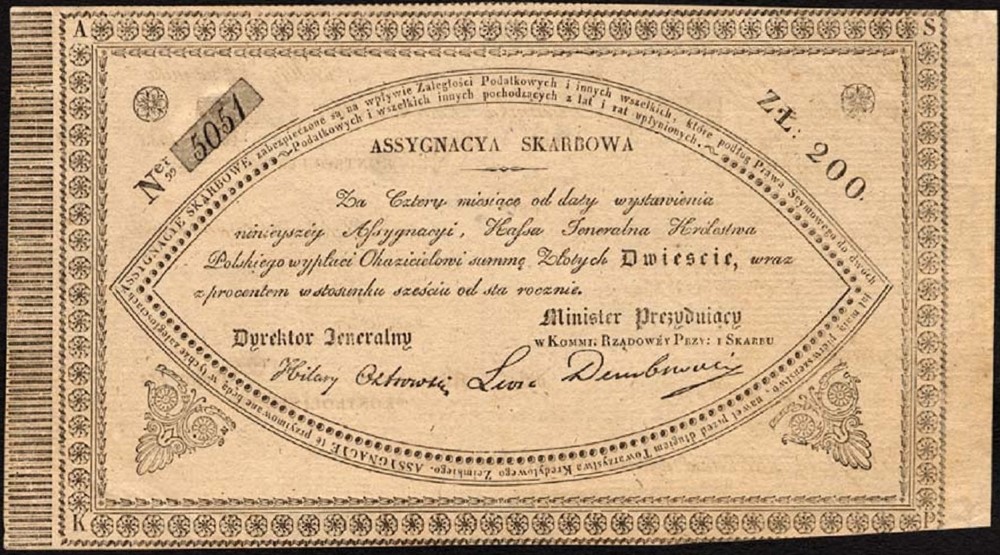 A S
Ner 5051
ZŁ: 200.
ASSYGNACYE SKARBOWE zabezpieczone są na wpływie Zaległości Podatkowych i innych wszelkich, które podług Prawa Seymowego do dwóch lat mają pierwszeństwo, nawet przed długiem Towarzystwa Kredytowego Ziemskiego. ASSYGNACJE te przyimowane będą w tychże zaległościach
Podatkowych i wszelkich innych pochodzących z lat i rat upłynionych.
ASSYGNACYA SKARBOWA
Za Cztery miesiące od daty wystawienia
ninieyszéy Assygnacyi, Kassa Jeneralna Królestwa
Polskiego wypłaci Okazicielowi summę Złotych Dwieście, wraz
z procentem w stosunku sześciu od sta rocznie.
Dyrektor Jeneralny
Minister Prezyduiący
w Kommi: Rządowéy Przy: i Skarbu
Hilary Ostrowski
Leon Dembowski
K P